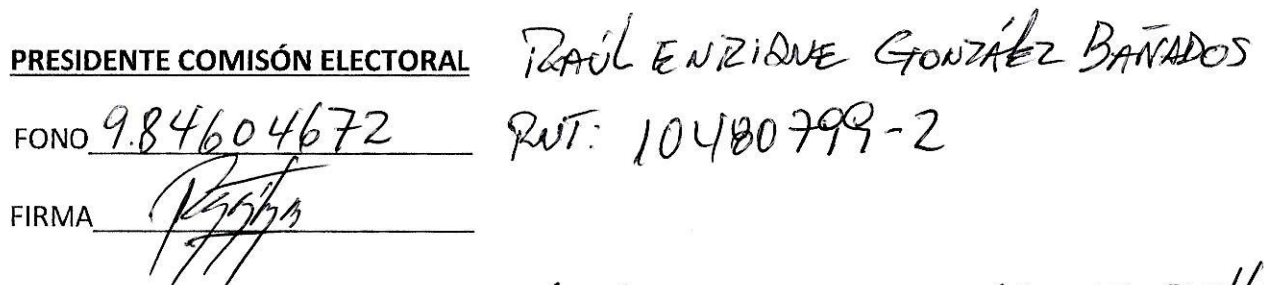 PRESIDENTE COMISÓN ELECTORAL RAÚL ENRIQUE GONZÁLEZ BAÑADOS
FONO 9.84604672 RUT: 10480799-2
FIRMA